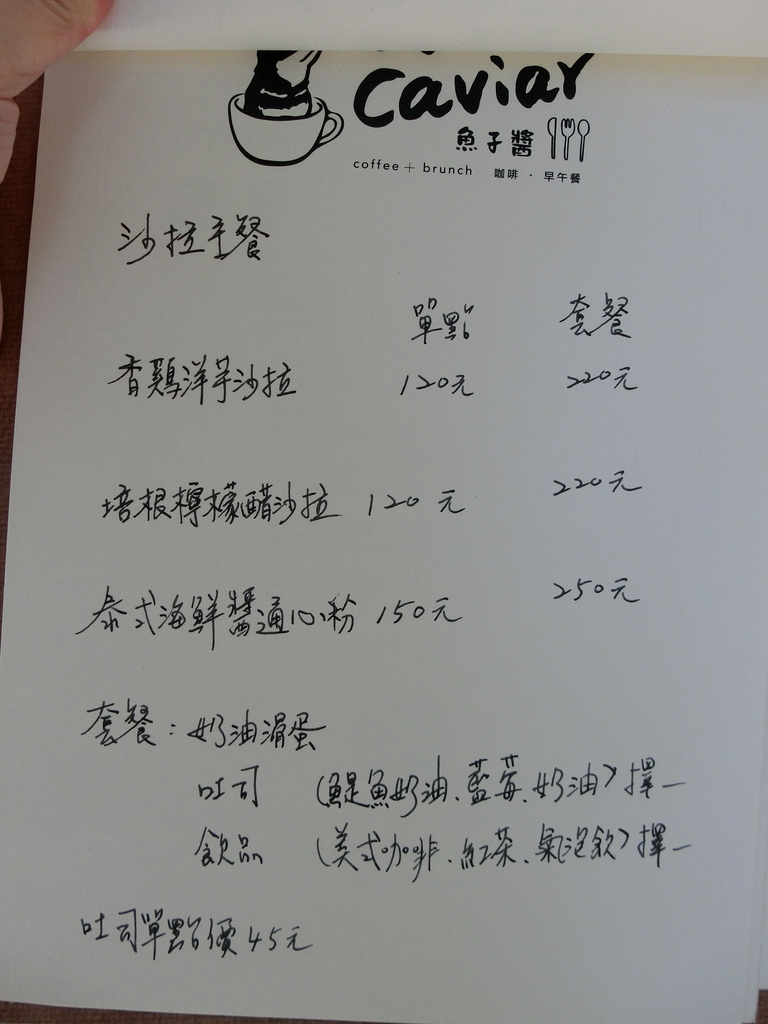 caviar
魚子醬
coffee + brunch 咖啡 · 早午餐
沙拉主餐
單點 套餐
香鷄洋芋沙拉 120元 220元
培根檸檬醋沙拉 120元 220元
泰式海鮮醬通心粉 150元 250元
套餐：奶油滑蛋
吐司 (鯷魚奶油、藍莓、奶油) 擇一
飲品 (美式咖啡、紅茶、氣泡飲) 擇一
吐司單點價45元